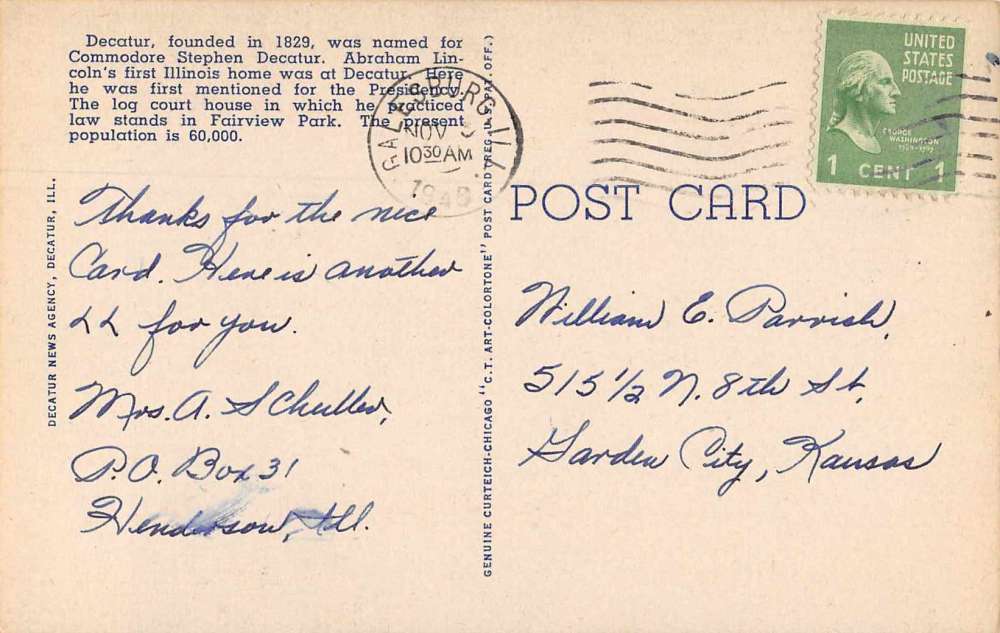 Decatur, founded in 1829, was named for
Commodore Stephen Decatur. Abraham Lin-
coln's first Illinois home was at Decatur. Here
he was first mentioned for the Presidency.
The log court house in which he practiced
law stands in Fairview Park. The present
population is 60,000.
GALESBURG, ILL.
NOV
10 30 AM
194
UNITED
STATES
POSTAGE
GEORGE
WASHINGTON
1 CENT 1
POST CARD
DECATUR NEWS AGENCY, DECATUR, ILL.
Thanks for the nice
Card. Here is another
LL for you.
Mrs. A. Schuller,
P.O. Box 31
Henderson, Ill.
GENUINE CURTEICH-CHICAGO "C.T. ART-COLORTONE" POST CARD (REG. U.S. PAT. OFF.)
William E. Parrish,
515 1/2 N. 8th St,
Garden City, Kansas